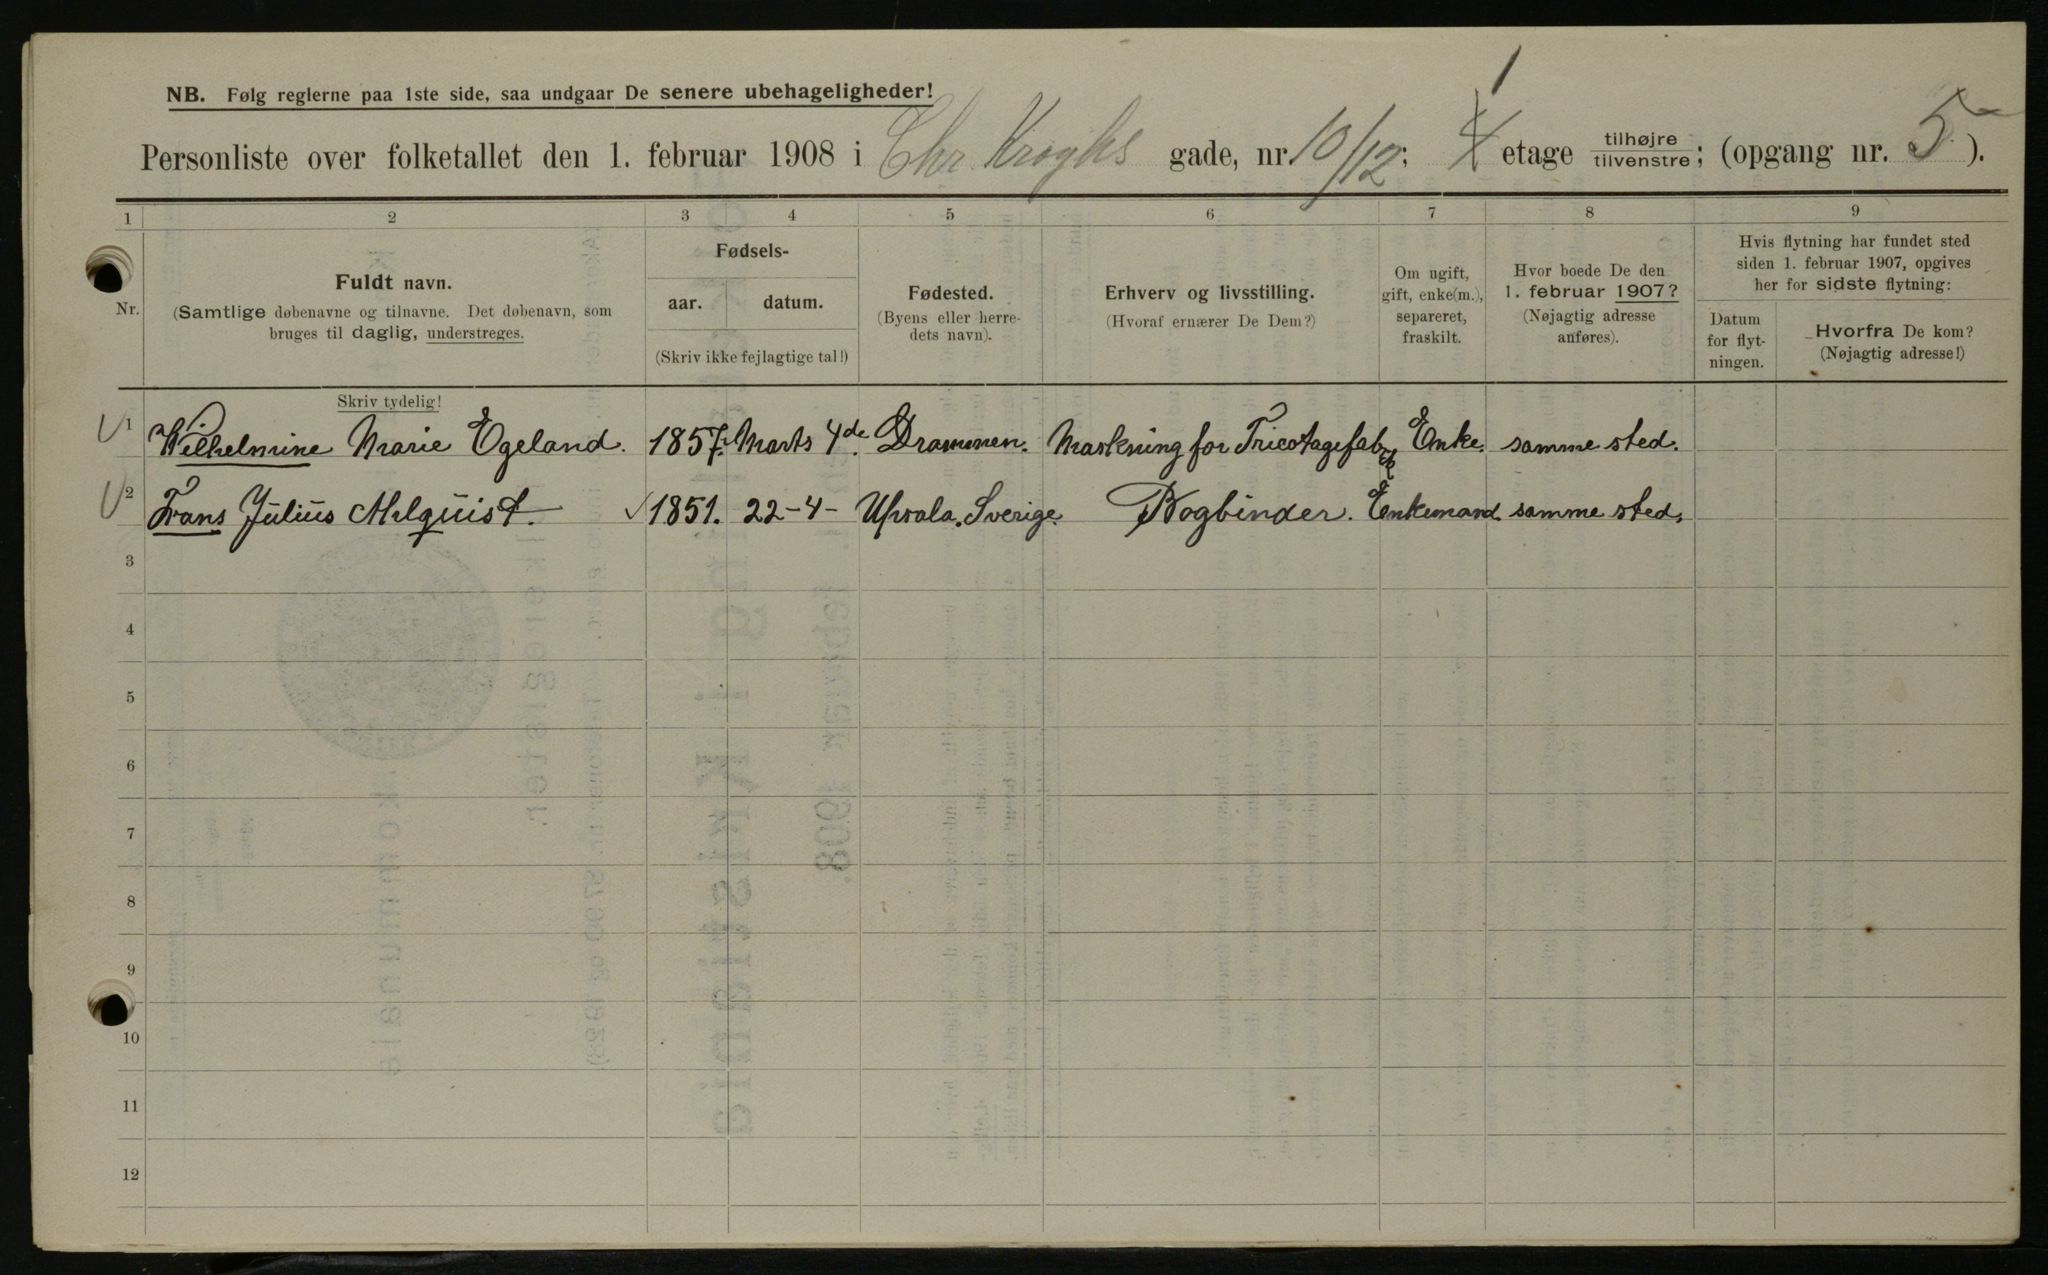 NB. Følg reglerne paa 1ste side, saa undgaar De senere ubehageligheder!
1
Personliste over folketallet den 1. februar 1908 i Chr Kroghs gade, nr. 10/12; 4 etage tilhøjre tilvenstre; (opgang nr. 5).
1 2 3 4 5 6 7 8 9
Nr.
Fuldt navn.
(Samtlige døbenavne og tilnavne. Det døbenavn, som
bruges til daglig, understreges.
Skriv tydelig!
Fødsels-
aar. datum.
(Skriv ikke fejlagtige tal!)
Fødested.
(Byens eller herre-
dets navn).
Erhverv og livsstilling.
(Hvoraf ernærer De Dem?)
Om ugift,
gift, enke(m.),
separeret,
fraskilt.
Hvor boede De den
1. februar 1907?
(Nøjagtig adresse
anføres).
Hvis flytning har fundet sted
siden 1. februar 1907, opgives
her for sidste flytning:
Datum
for flyt-
ningen.
Hvorfra De kom?
(Nøjagtig adresse!)
1 Wilhelmine Marie Egeland. 1857. Marts 4de. Drammen. Maskning for Tricotagefabrik Enke. samme sted.
2 Frans Julius Ahlquist. 1851. 22-4- Upsala. Sverige. Bogbinder. Enkemand samme sted.
3
4
5
6
7
8
9
10
11
12